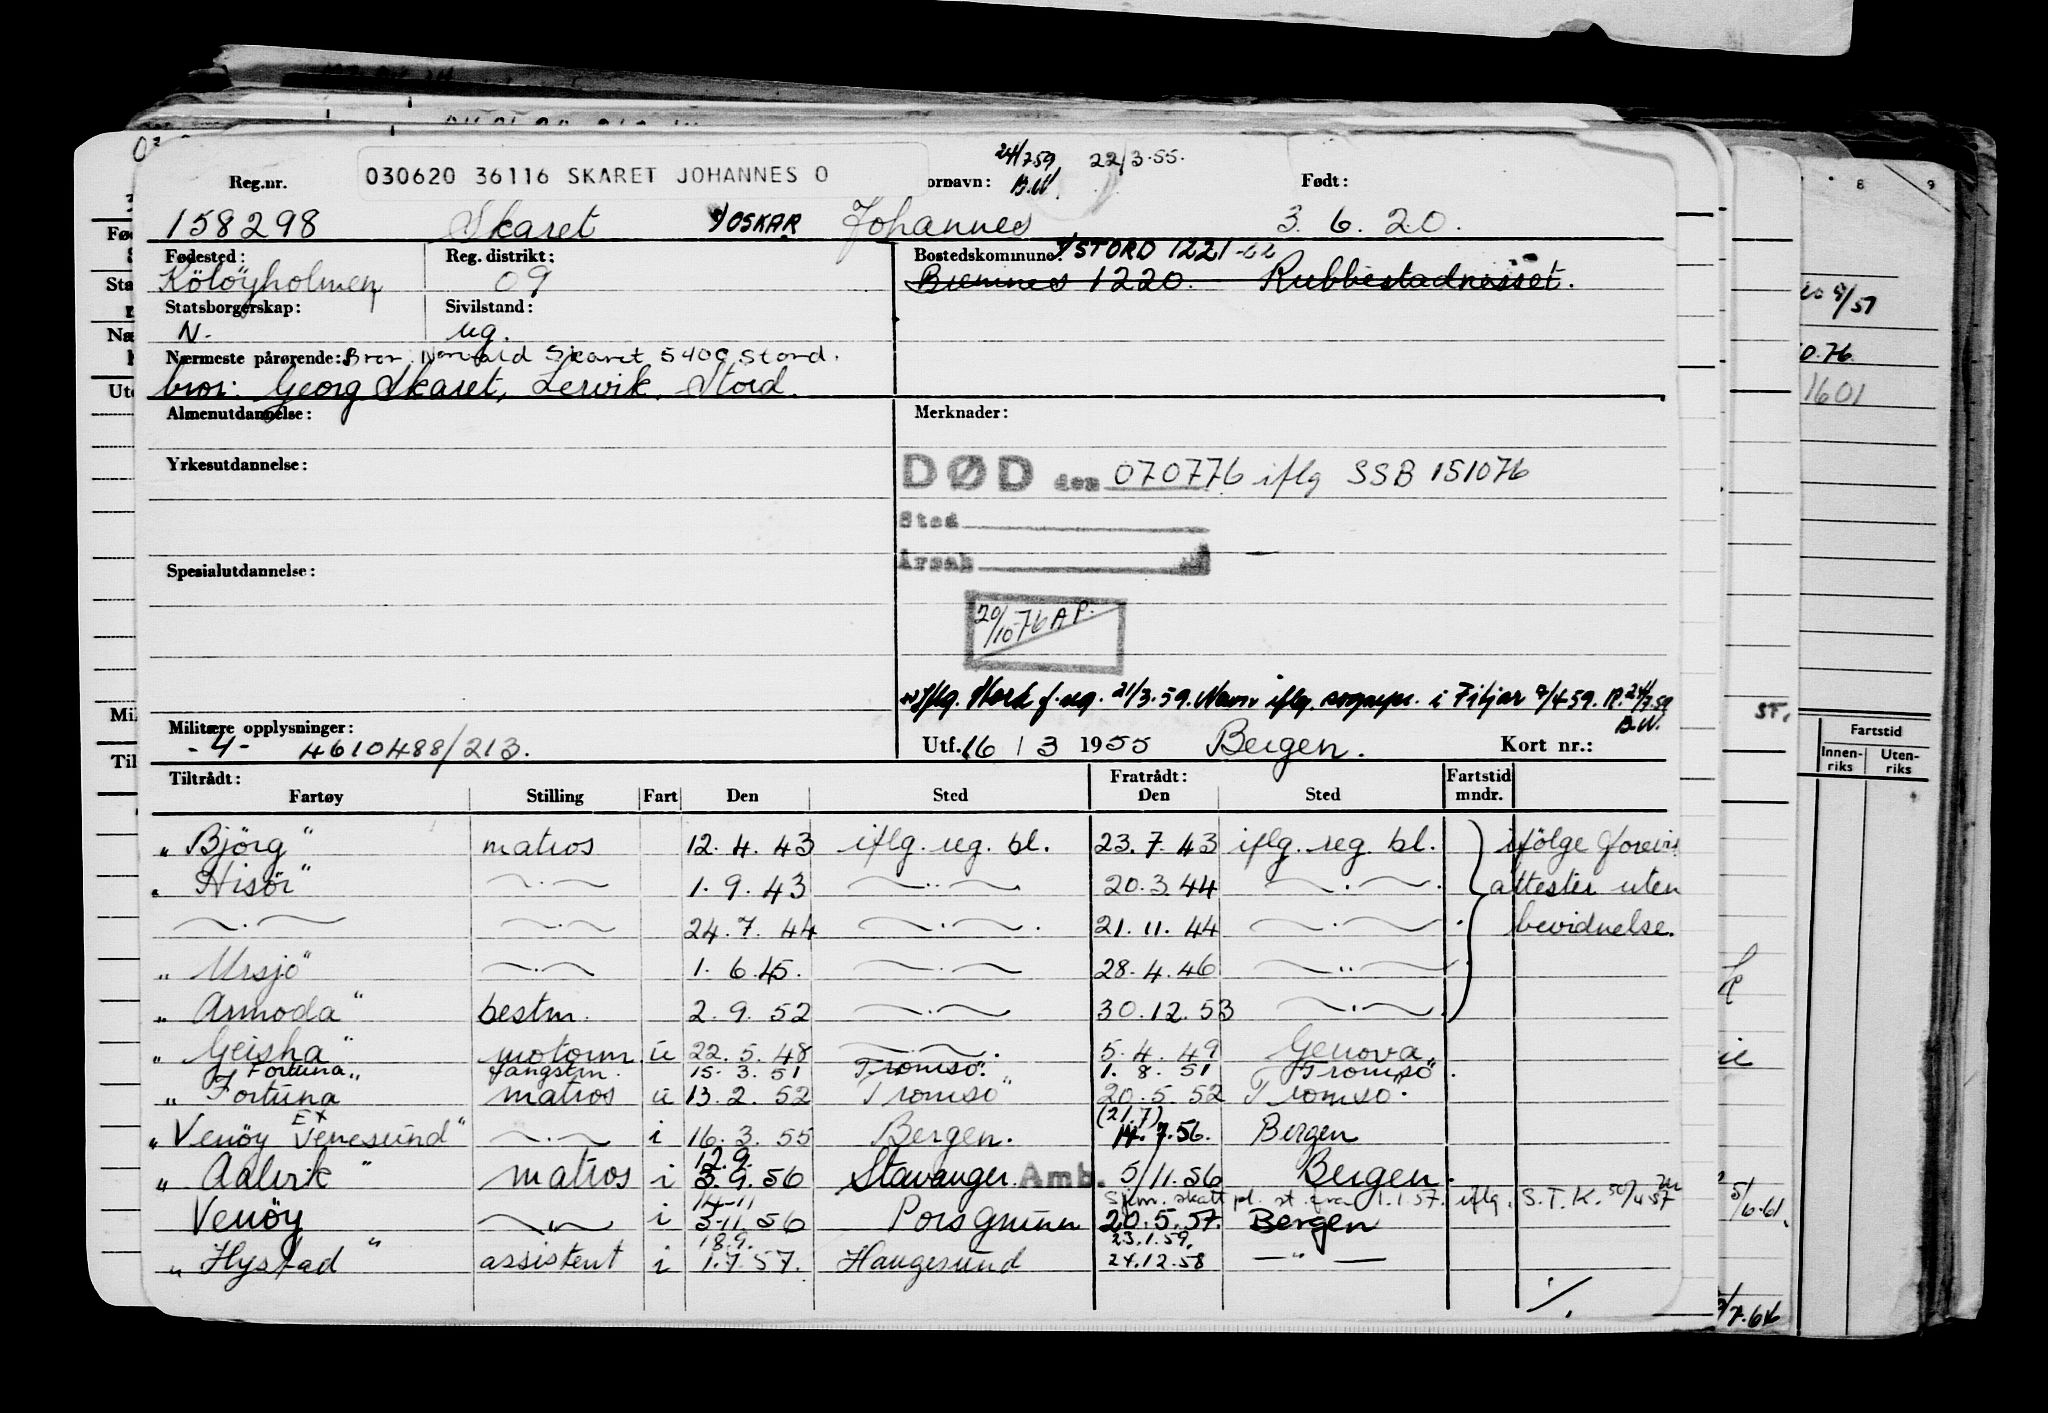 24/7 59 22/3.55.
Reg.nr. 030620 36116 SKARET JOHANNES O ornavn: B.W. Født:
158298 Skaret OSKAR Johannes 3. 6. 20.
Fødested: Reg. distrikt: Bostedskommune: STORD 1221
Kölöyholmen 09 Bremnes 1220. Rubbestadnesset.
Statsborgerskap: Sivilstand:
N. ug.
Nærmeste pårørende: Bror Skaret 5400 Stord.
bror: Georg Skaret, Lervik, Stord.
Almenutdannelse: Merknader:
Yrkesutdannelse: DØD den 070776 iflg SSB 151076
Sted
Årsak
Spesialutdannelse:
20/10-76 A.P.
Iflg. Stord f.reg. 21/3.59. Navn iflg. sognepr. i Fitjar 9/4 59. 24/7.59
B.W.
Militære opplysninger: Utf. 16 / 3 1955 Bergen. Kort nr.:
-4- 4610488/213.
Tiltrådt: Fratrådt: Fartstid
Fartøy Stilling Fart Den Sted Den Sted mndr.
„Björg" matros 12. 4. 43 iflg. reg. bl. 23. 7. 43 iflg. reg. bl. ifölge forevis
„Hisör" —.— 1. 9. 43 —..— 20. 3. 44 —.—. attester uten
—.— —.— 24. 7. 44 —.—. 21. 11. 44 —.—. bevidnelse.
„Ursjö" —.— 1. 6. 45. —.— 28. 4. 46 —..—
„Armoda" bestm. 2. 9. 52 —.— 30. 12. 53 —.—
„Geisha" motorm. u 22. 5. 48 —.—. 5. 4. 49 Genova
„Fortuna" fangstm. 15. 3. 51 Tromsö. 1. 8. 51 Tromsö.
„Fortuna matros u 13. 2. 52 Tromsö" 20. 5. 52 Tromsö"
EX (21.7)
„Venöy Venesund" —.— i 16. 3. 55 Bergen. 14. 7. 56. Bergen
12.9.
„Aalvik" matros i 3. 9. 56 Stavanger. Amb. 5/11. 56 Bergen.
14-11 Sjøm. skatt pl. st. fra 1.1.57. iflg. S.T.K. 30/4 57
Venöy —..— i 5-11. 56 Porsgrunn 20. 5. 57. Bergen
18.9. 23.1.59.
„Hystad" assistent i 1. 7. 57. Haugesund 24.12.58 — " —
./.
8 9
0.76.
1601
Fartstid
Innen-riks Uten-riks
5/6.61.
7.64